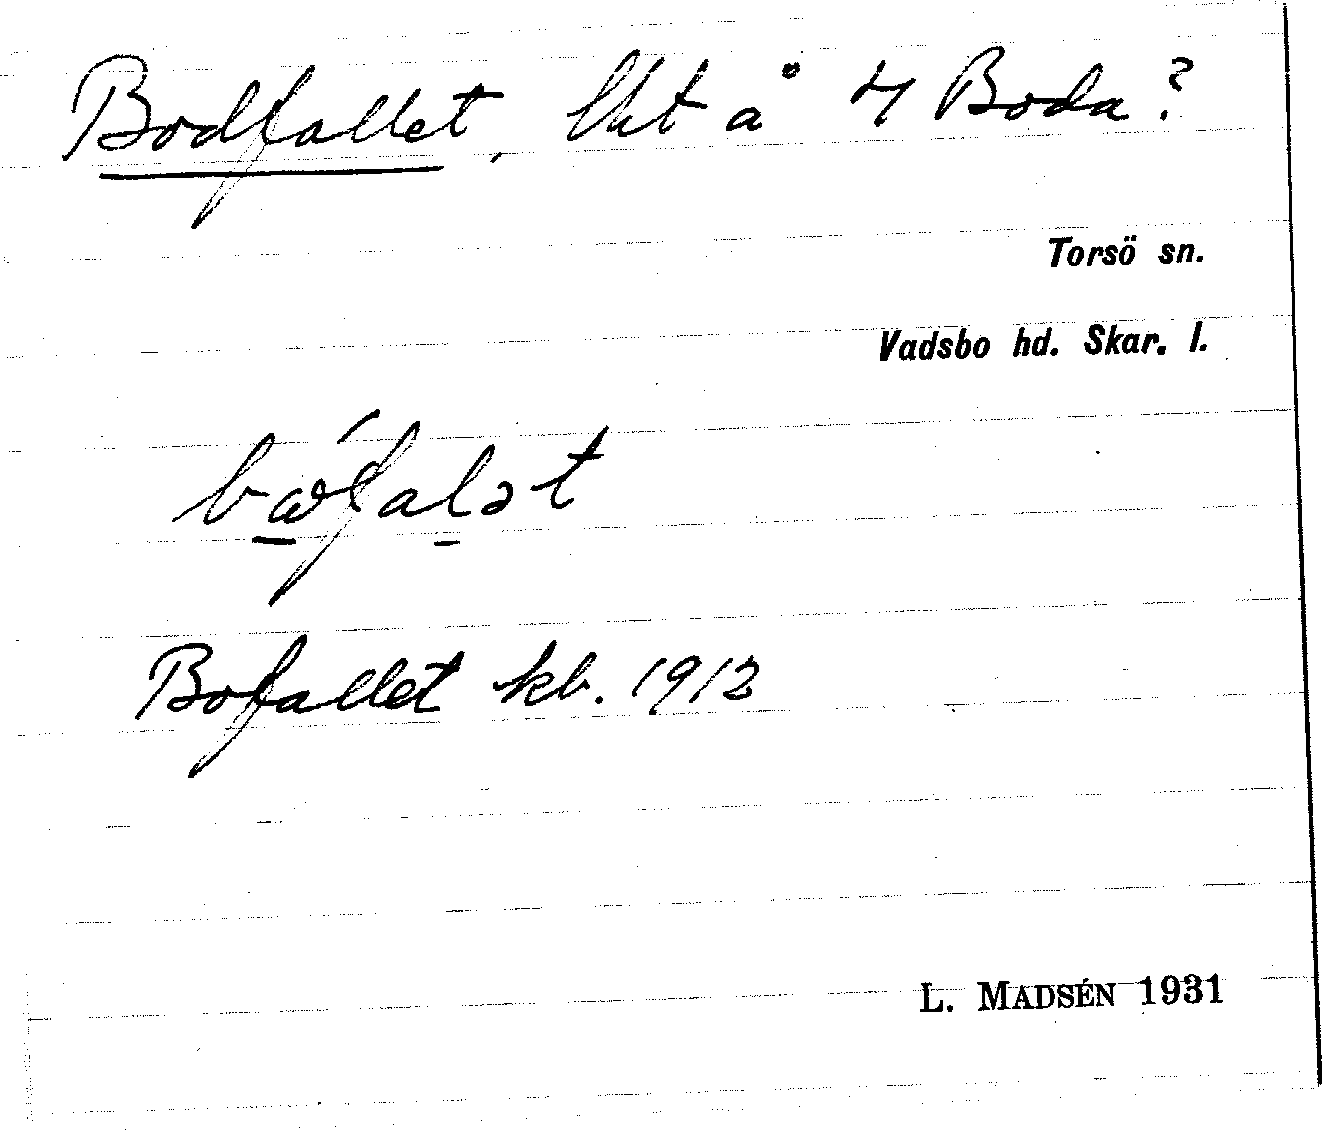 Bodfallet, lht å 4 Boda?
Torsö sn.
Vadsbo hd. Skar. l.
Bofallet kb. 1912
L. MADSÉN 1931